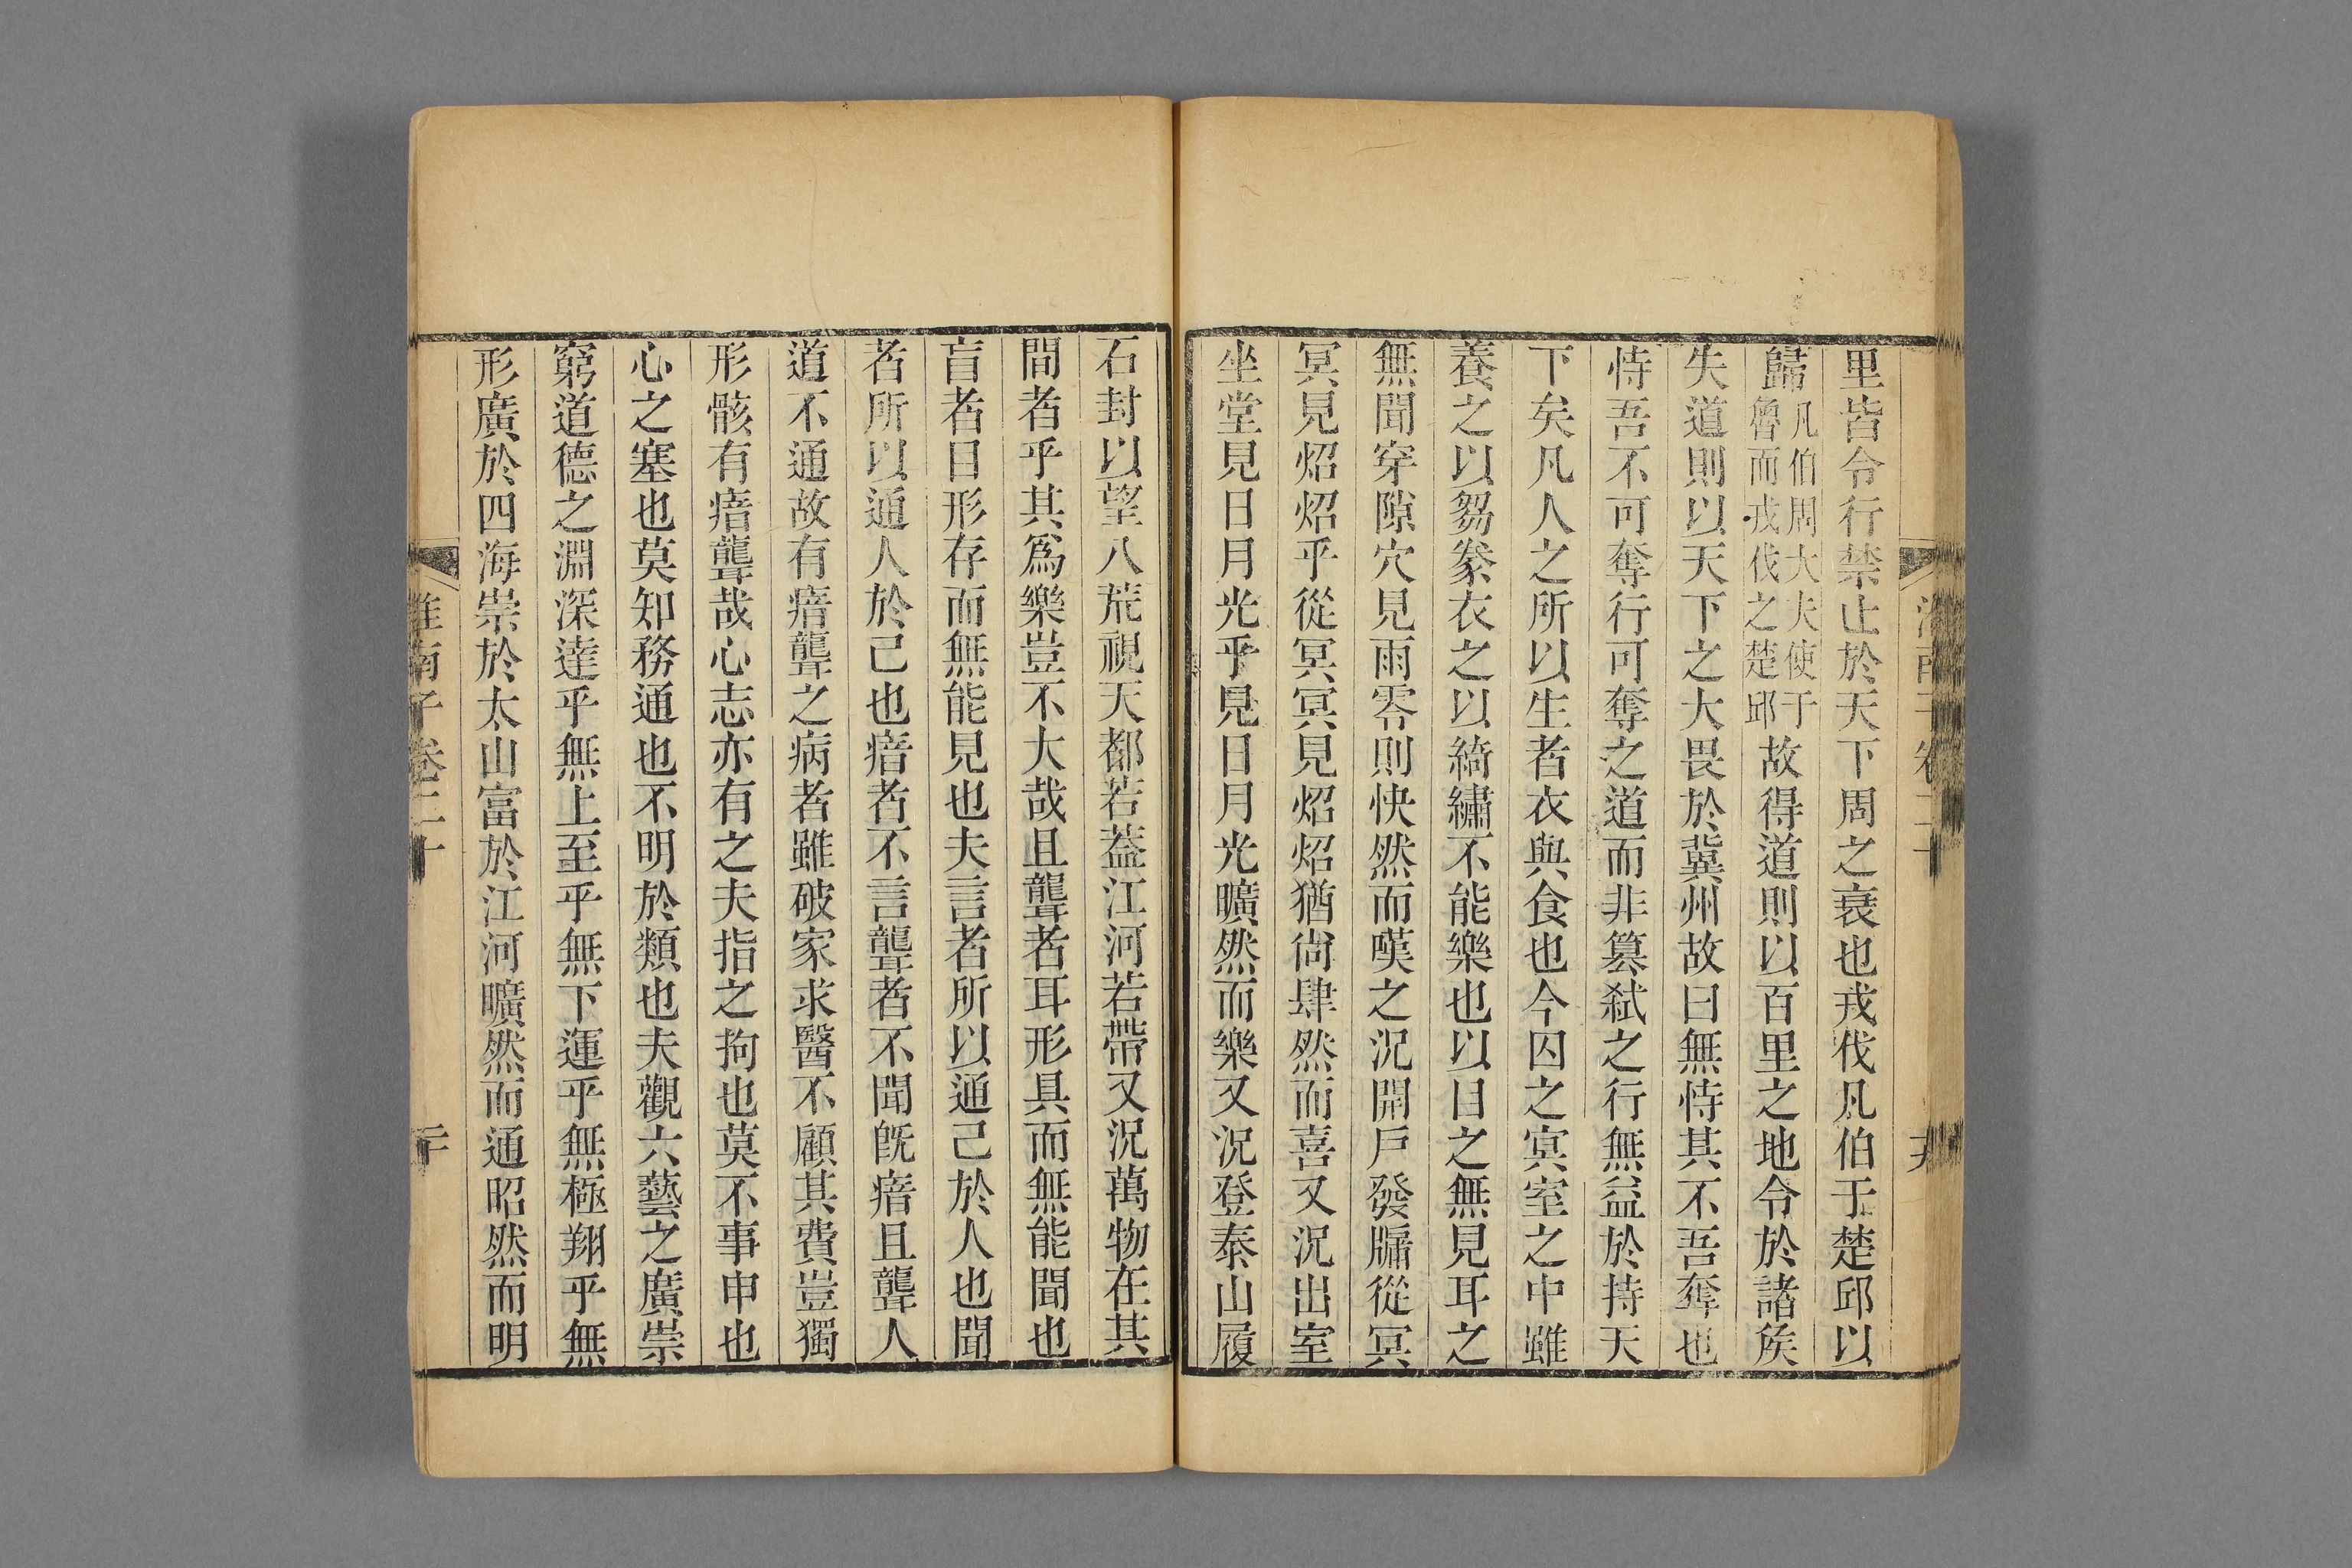 里皆令行禁止於天下周之衰也戎伐凡伯于楚邱以
歸凡伯周大夫使于魯而戎伐之楚邱故得道則以百里之地令於諸矦
失道則以天下之大畏於冀州故曰無恃其不吾奪也
恃吾不可奪行可奪之道而非簒弑之行無益於持天
下矣凡人之所以生者衣與食也今囚之冥室之中雖
養之以芻豢衣之以綺繡不能樂也以目之無見耳之
無聞穿隙穴見雨零則快然而嘆之況開戸發牖從冥
冥見炤炤乎從冥冥見炤炤猶尙肆然而喜又況出室
坐堂見日月光乎見日月光曠然而樂又況登泰山履
石封以望八荒視天都若葢江河若帶又況萬物在其
間者乎其爲樂豈不大哉且聾者耳形具而無能聞也
盲者目形存而無能見也夫言者所以通己於人也聞
者所以通人於己也瘖者不言聾者不聞旣瘖且聾人
道不通故有瘖聾之病者雖破家求醫不顧其費豈獨
形骸有瘖聾哉心志亦有之夫指之拘也莫不事申也
心之塞也莫知務通也不明於類也夫觀六藝之廣崇
窮道德之淵深達乎無上至乎無下運乎無極翔乎無
形廣於四海崇於太山富於江河曠然而通昭然而明
淮南子卷二十
二十